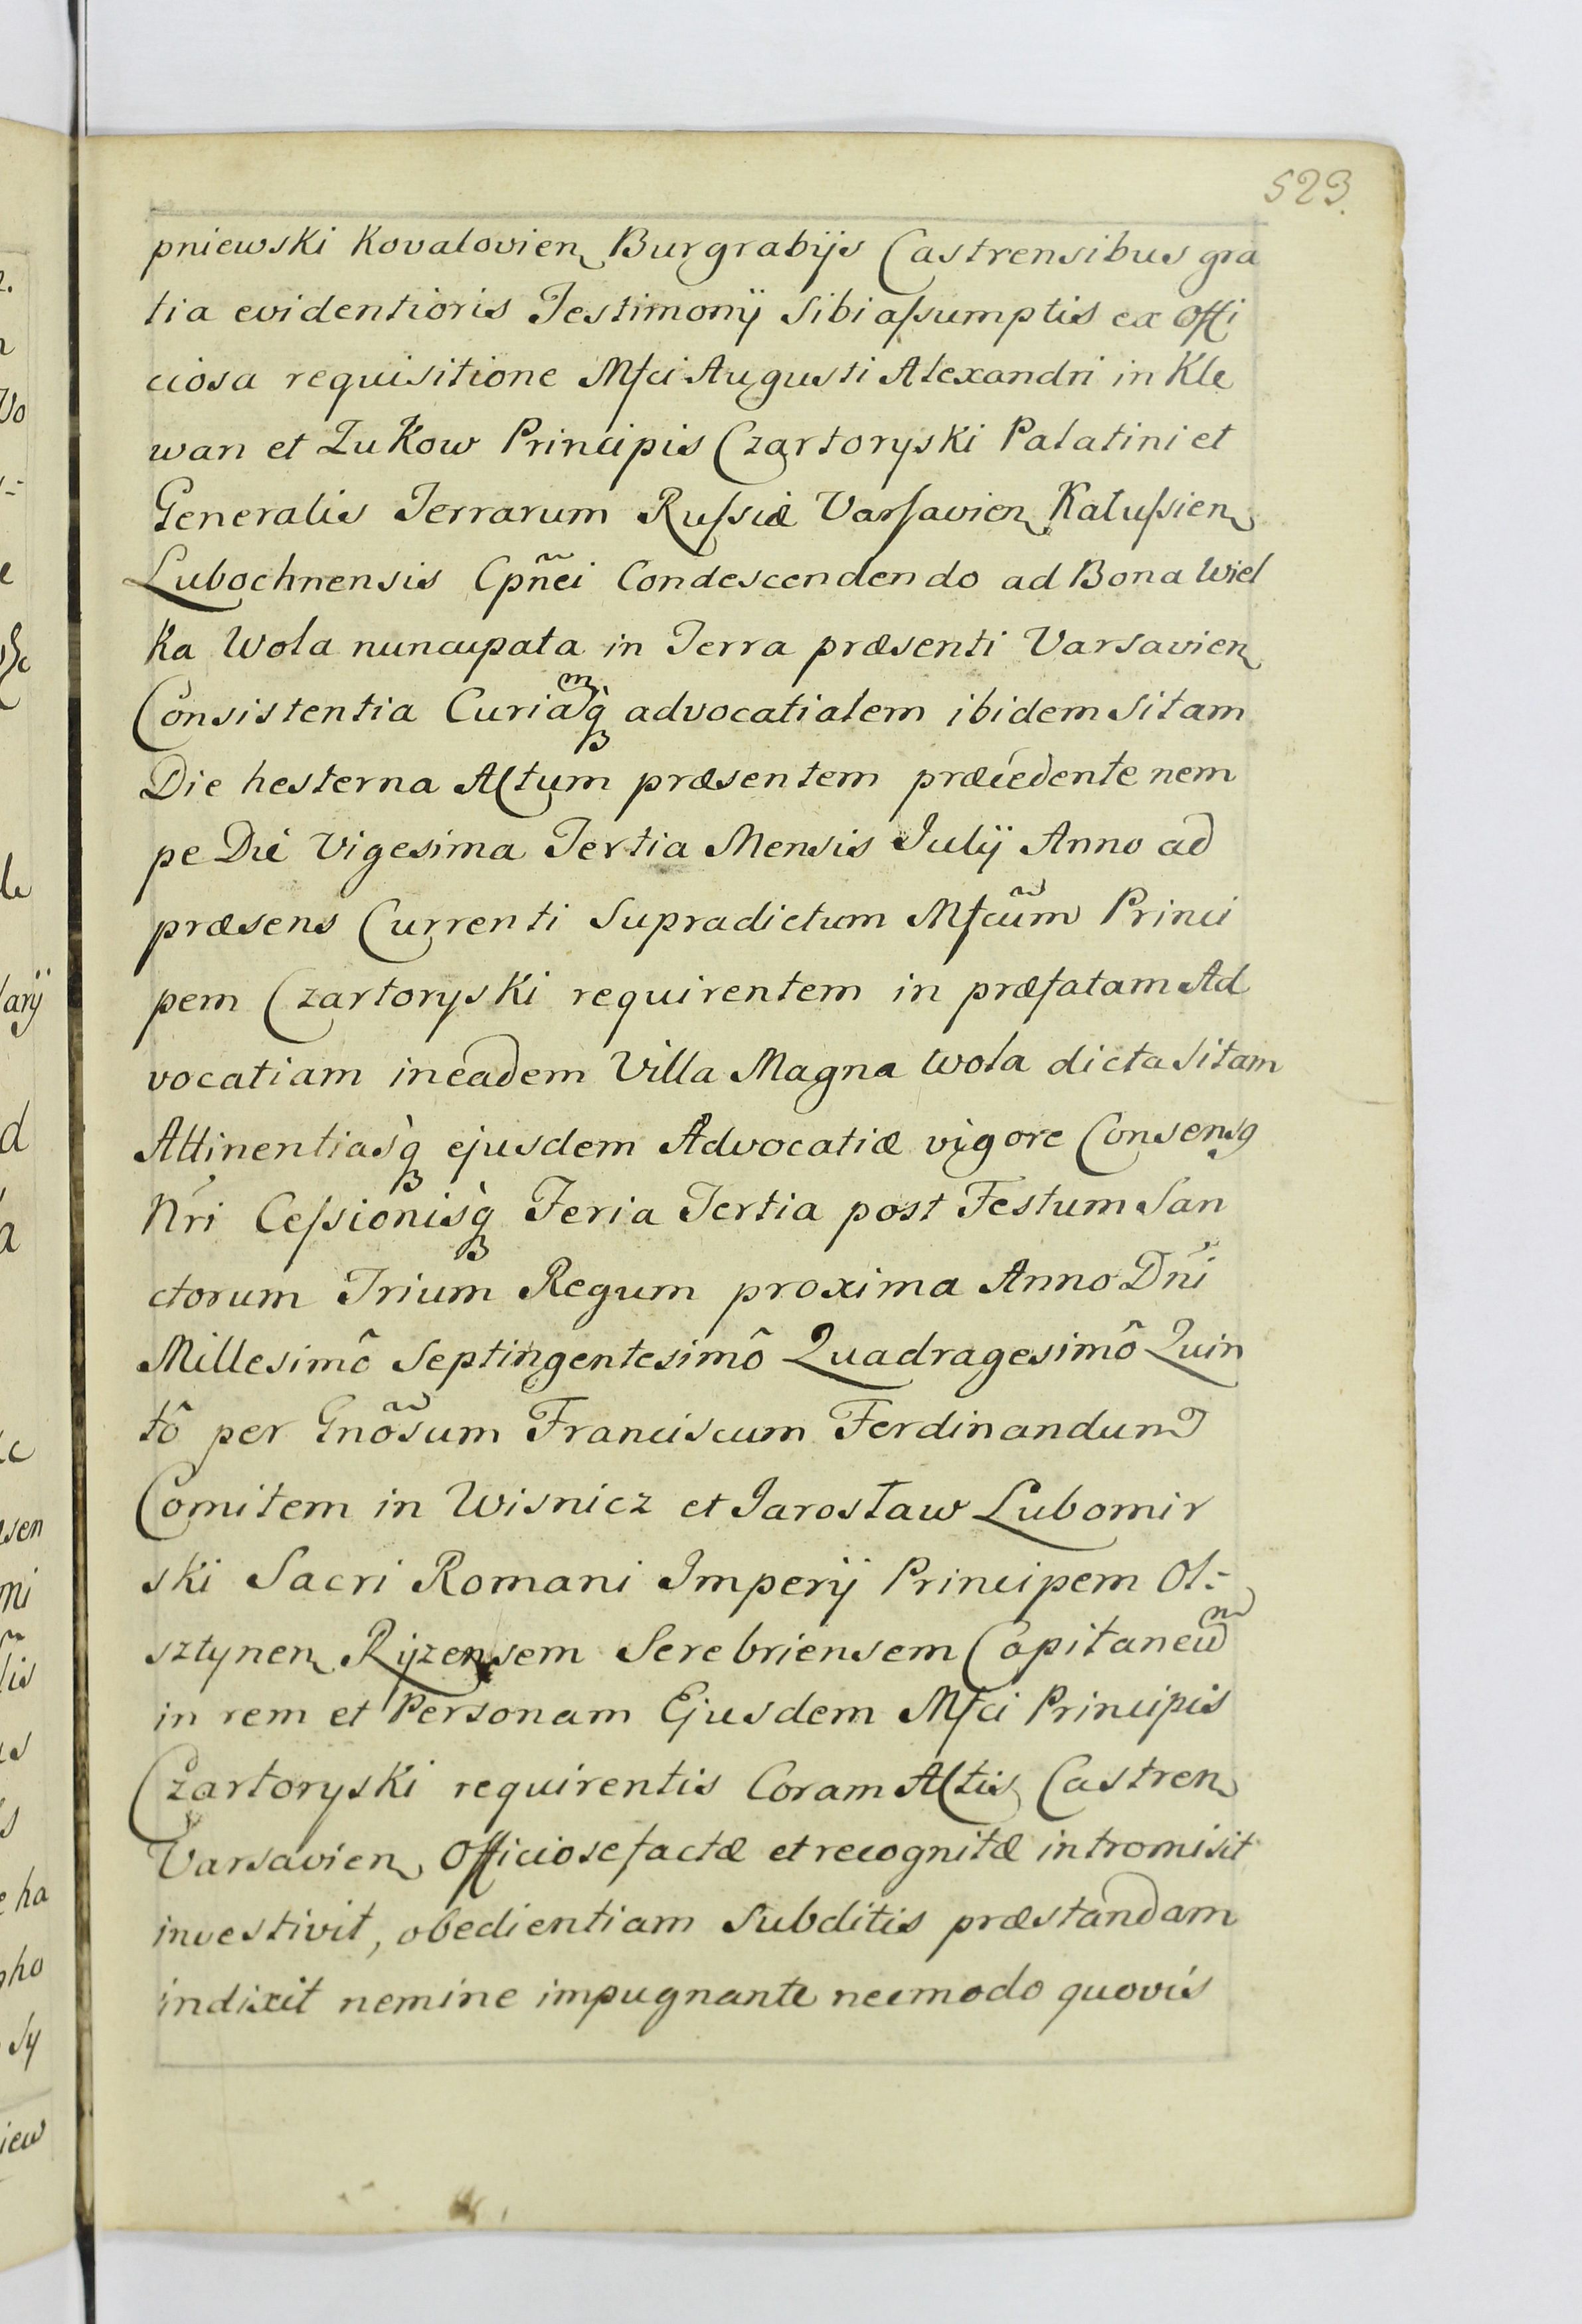 523.
pniewski Kovalovien Burgrabijs Castrensibus gra
tia evidentioris Testimonij sibi aſsumptis ex Offi
ciosa requisitione Mfci Augusti Alexandri in Kle
wan et Zukow Principis Czartoryski Palatini et
Generalis Terrarum Ruſsiæ Varſavien Kaluſsien
Lubochnensis Cpñei Condescendendo ad Bona Wiel
ka Wola nuncupata in Terra præsenti Varsavien
Consistentia Curiamq̀3 advocatialem ibidem sitam
Die hesterna Actum præsentem præcedente nem
pe Die Vigesima Tertia Mensis Julij Anno ad
præsens Currenti Supradictum Mfcum Princi
pem Czartoryski requirentem in præfatam Ad
vocatiam in eadem Villa Magna Wola dicta sitam
Attinentiasq̀3 ejusdem Advocatiæ vigore Consensq
Nr̃i Ceſsionisq̀3 Feria Tertia post Festum San
ctorum Trium Regum proxima Anno Dñi
Millesimô Septingentesimô Quadragesimô Quin
tô per Gnõsum Franciscum Ferdinandum
Comitem in Wisnicz et Jarosław Lubomir
ski Sacri Romani Imperij Principem Ol=
sztynen Ryzensem Serebriensem Capitaneum
in rem et Personam Ejusdem Mfci Principis
Czartoryski requirentis Coram Actis Castren
Varsavien Officiose factæ et recognitæ intromisit
investivit, obedientiam Subditis præstandam
indixit nemine impugnante nec modo quovis